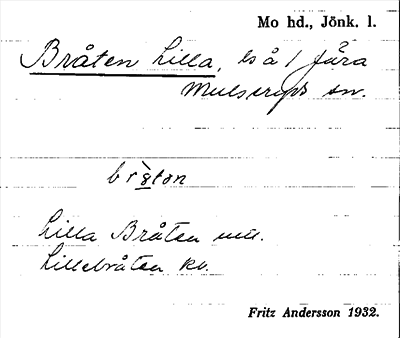 Mo hd., Jönk. l.
Bråten Lilla, ls å 1 Jära
Mulseryds sn.
Lilla Bråten
Lillebråten kv.
Fritz Andersson 1932.